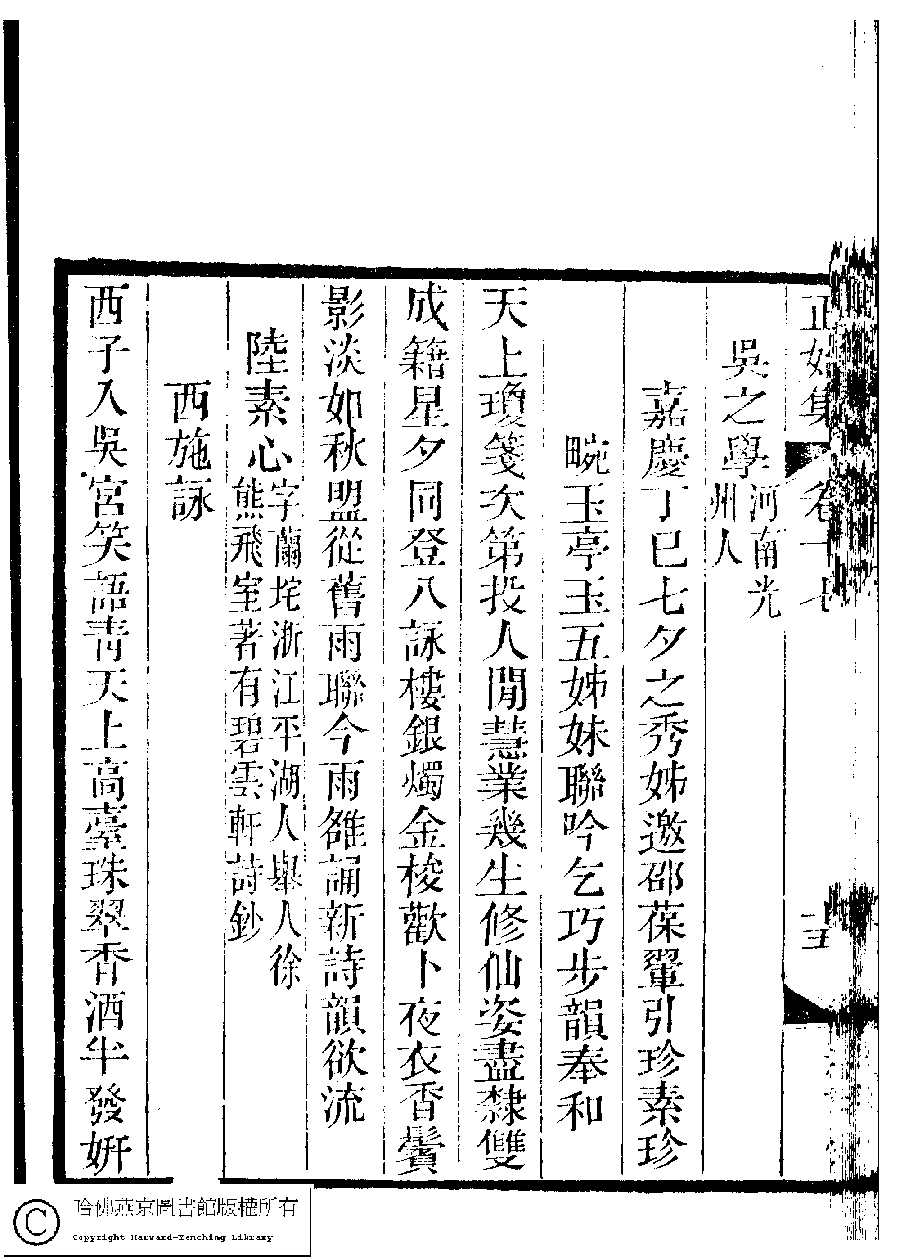 正始集 卷十七 十五
吳之學河南光
州人
嘉慶丁巳七夕之秀姊邀邵葆翬引珍素珍
畹玉亭玉五姊妹聯吟乞巧步韻奉和
天上瓊箋次第投人閒慧業幾生修仙姿盡隸雙
成籍星夕同登八詠樓銀燭金梭歡卜夜衣香鬢
影淡如秋盟從舊雨聯今雨雒誦新詩韻欲流
陸素心字蘭垞浙江平湖人舉人徐
熊飛室著有碧雲軒詩鈔
西施詠
西子入吳宮笑語靑天上高臺珠翠香酒半發姸
哈佛燕京圖書館版權所有
Copyright Harvard-Yenching Library